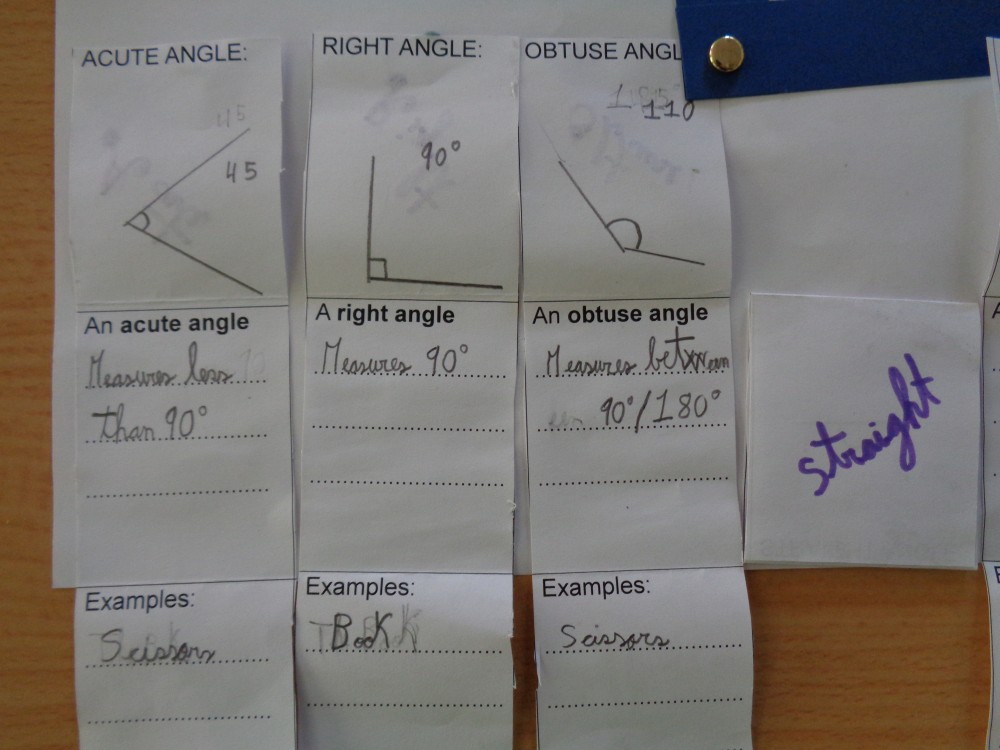 ACUTE ANGLE:
45
45
An acute angle
Measures less
than 90°
Examples:
Scissors
RIGHT ANGLE:
90°
A right angle
Measures 90°
Examples:
Book
OBTUSE ANGL
110
An obtuse angle
Measures between
90°/180°
Examples:
Scissors
straight